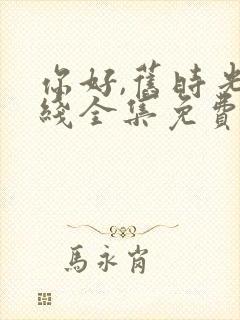 你好,舊時光
綫全集免費
馬永肖